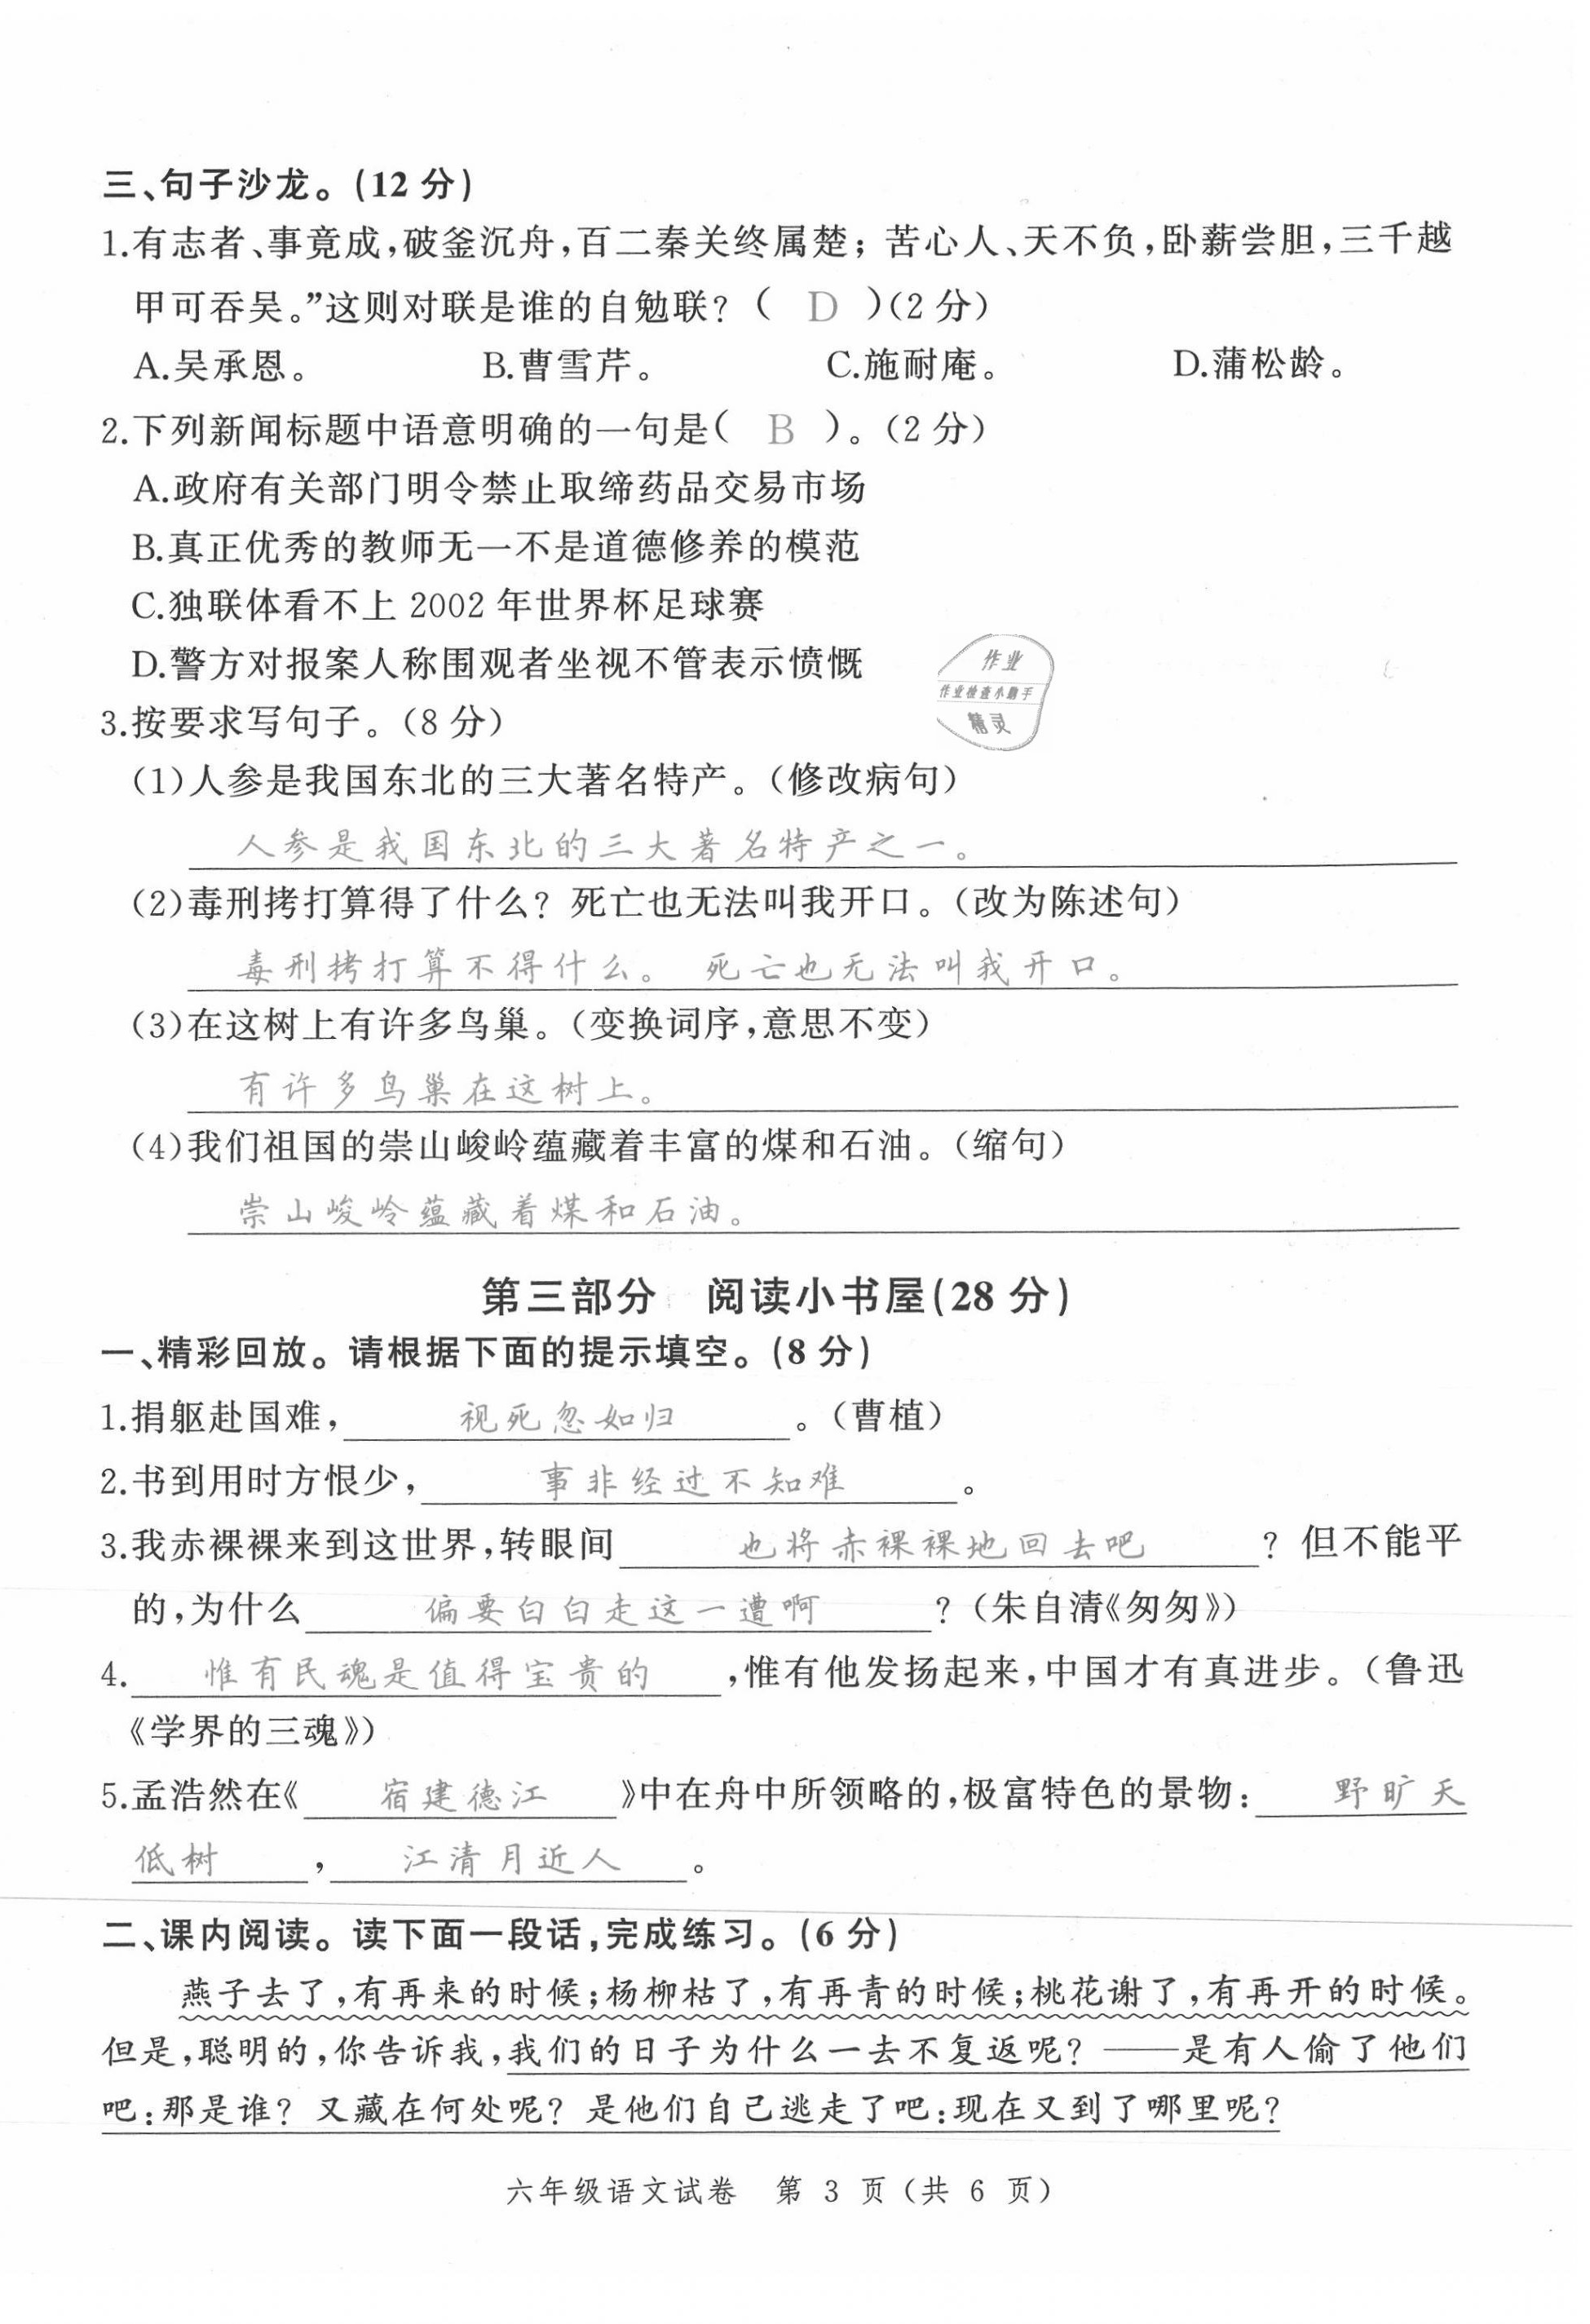 三、句子沙龙。(12 分)
1.有志者、事竟成,破釜沉舟,百二秦关终属楚；苦心人、天不负,卧薪尝胆,三千越
甲可吞吴。”这则对联是谁的自勉联？( D )(2 分)
A.吴承恩。 B.曹雪芹。 C.施耐庵。 D.蒲松龄。
2.下列新闻标题中语意明确的一句是( B )。(2 分)
A.政府有关部门明令禁止取缔药品交易市场
B.真正优秀的教师无一不是道德修养的模范
C.独联体看不上 2002 年世界杯足球赛
D.警方对报案人称围观者坐视不管表示愤慨
作业
作业检查小助手
精灵
3.按要求写句子。(8 分)
(1)人参是我国东北的三大著名特产。(修改病句)
人参是我国东北的三大著名特产之一。
(2)毒刑拷打算得了什么？死亡也无法叫我开口。(改为陈述句)
毒刑拷打算不得什么。 死亡也无法叫我开口。
(3)在这树上有许多鸟巢。(变换词序,意思不变)
有许多鸟巢在这树上。
(4)我们祖国的崇山峻岭蕴藏着丰富的煤和石油。(缩句)
崇山峻岭蕴藏着煤和石油。
第三部分 阅读小书屋(28 分)
一、精彩回放。请根据下面的提示填空。(8 分)
1.捐躯赴国难, 视死忽如归 。(曹植)
2.书到用时方恨少, 事非经过不知难 。
3.我赤裸裸来到这世界,转眼间 也将赤裸裸地回去吧 ？但不能平
的,为什么 偏要白白走这一遭啊 ？(朱自清《匆匆》)
4. 惟有民魂是值得宝贵的 ,惟有他发扬起来,中国才有真进步。(鲁迅
《学界的三魂》)
5.孟浩然在《 宿建德江 》中在舟中所领略的,极富特色的景物: 野旷天
低树 , 江清月近人 。
二、课内阅读。读下面一段话,完成练习。(6 分)
燕子去了,有再来的时候;杨柳枯了,有再青的时候;桃花谢了,有再开的时候。
但是,聪明的,你告诉我,我们的日子为什么一去不复返呢？——是有人偷了他们
吧:那是谁？又藏在何处呢？是他们自己逃走了吧:现在又到了哪里呢？
六年级语文试卷 第 3 页(共 6 页)